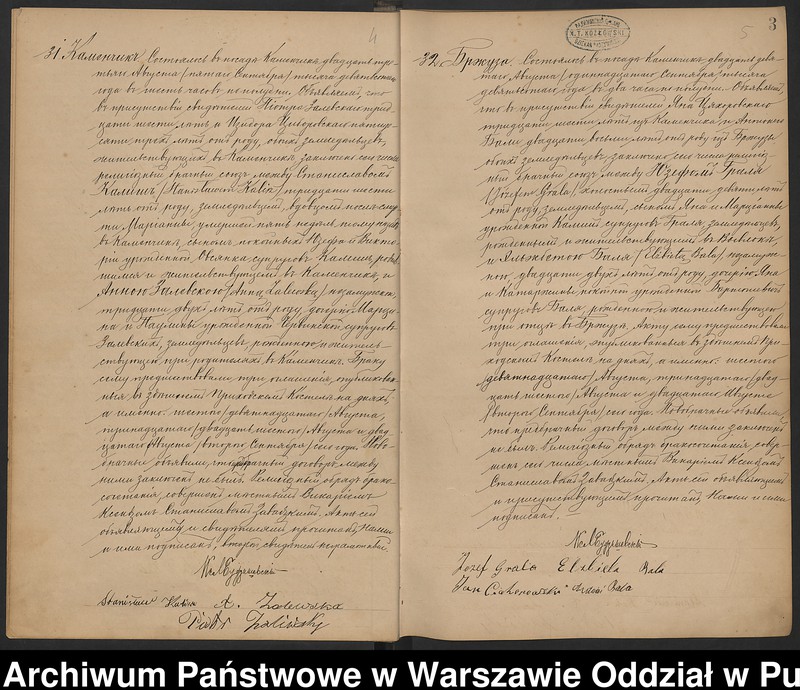 4
31 Каменчикъ. Состоялось въ посадѣ Каменчикъ двадцать тре-
тьяго Августа /пятаго Сентября/ тысяча девятьсотаго
года въ шесть часовъ по полудни. Объявляемъ, что
въ присутствіи свидѣтелей Петра Залевскаго трид-
цати шести лѣтъ и
сяти трехъ лѣтъ отъ роду, обоихъ земледѣльцевъ,
жительствующихъ въ Каменчикѣ заключенъ сего числа
религіозный брачный союзъ между Станиславомъ
/Stanisław Kalin/ тридцати шести
лѣтъ отъ роду, земледѣльцемъ, вдовцомъ послѣ смер-
ти Маріанны умершей пять недѣль тому назадъ
въ Каменчикѣ, сыномъ покойныхъ Іозефа и Викто-
ріи урожденной супруговъ родив-
шимся и жительствующимъ въ Каменчикѣ, и
Анною Залевскою /Anna Zalewska/ незамужнею,
тридцати двухъ лѣтъ отъ роду, дочерью Марци-
на и Паулины урожденной супруговъ
Залевскихъ, земледѣльцевъ, рожденною и житель-
ствующею при родителяхъ въ Каменчикѣ. Браку
сему предшествовали три оглашенія, опубликован-
ныя въ здѣшнемъ Приходскомъ Костелѣ на дняхъ,
а именно: шестого /девятнадцатаго/ Августа,
тринадцатаго /двадцать шестого/ Августа и двад-
цатаго Августа /второго Сентября/ сего года. Ново-
брачные объявили, что предбрачный договоръ между
ними заключенъ не былъ. Религіозный обрядъ брако-
сочетанія совершенъ мѣстнымъ Викаріемъ
Ксендзомъ Станиславомъ Завадзкимъ. Актъ сей
объявляющимъ и свидѣтелямъ прочитанъ, Нами
и ими подписанъ, второй свидѣтель неграмотный.
Stanisław Kalin A. Zalewska
Piotr Zalewsky
5
3
K. T. KOZŁOWSKI
32. Бржуза. Состоялось въ посадѣ Каменчикъ двадцать девя-
таго Августа /одиннадцатаго Сентября/ тысяча
девятьсотаго года въ два часа по полудни. Объявляемъ,
что въ присутствіи свидѣтелей Яна Цихоновскаго
тридцати шести лѣтъ изъ Каменчика и Антонія
Баля двадцати восьми лѣтъ отъ роду изъ Бржузы
обоихъ земледѣльцевъ, заключенъ сего числа религіоз-
ный брачный союзъ между Юзефомъ Граля
/Józef Grala/, холостымъ двадцати девяти лѣтъ
отъ роду, земледѣльцемъ, сыномъ Яна и Марціанны
урожденной супруговъ Граля, земледѣльцевъ,
рожденнымъ и жительствующимъ въ
и Эльжбетою Баля /Elżbieta Bala/ незамуж-
ною, двадцати двухъ лѣтъ отъ роду, дочерью Яна
и Катаржины покойной урожденной
супруговъ Баля, рожденною и жительствующею
при отцѣ въ Бржузѣ. Акту сему предшествовали
три оглашенія, опубликованныя въ здѣшнемъ При-
ходскомъ Костелѣ на дняхъ, а именно: шестого
/девятнадцатаго/ Августа, тринадцатаго /двад-
цать шестого/ Августа и двадцатаго Августа
/второго Сентября/ сего года. Новобрачные объявили,
что предбрачный договоръ между ними заключенъ
не былъ. Религіозный обрядъ бракосочетанія совер-
шенъ сего числа мѣстнымъ Викаріемъ Ксендзомъ
Станиславомъ Завадзкимъ. Актъ сей объявляющимъ
и присутствующимъ прочитанъ, Нами и ими
подписанъ.
Józef Grala Elzbieta Bala
Jan Cichonowski Antoni Bala
Archiwum Państwowe w Warszawie Oddział w Pu